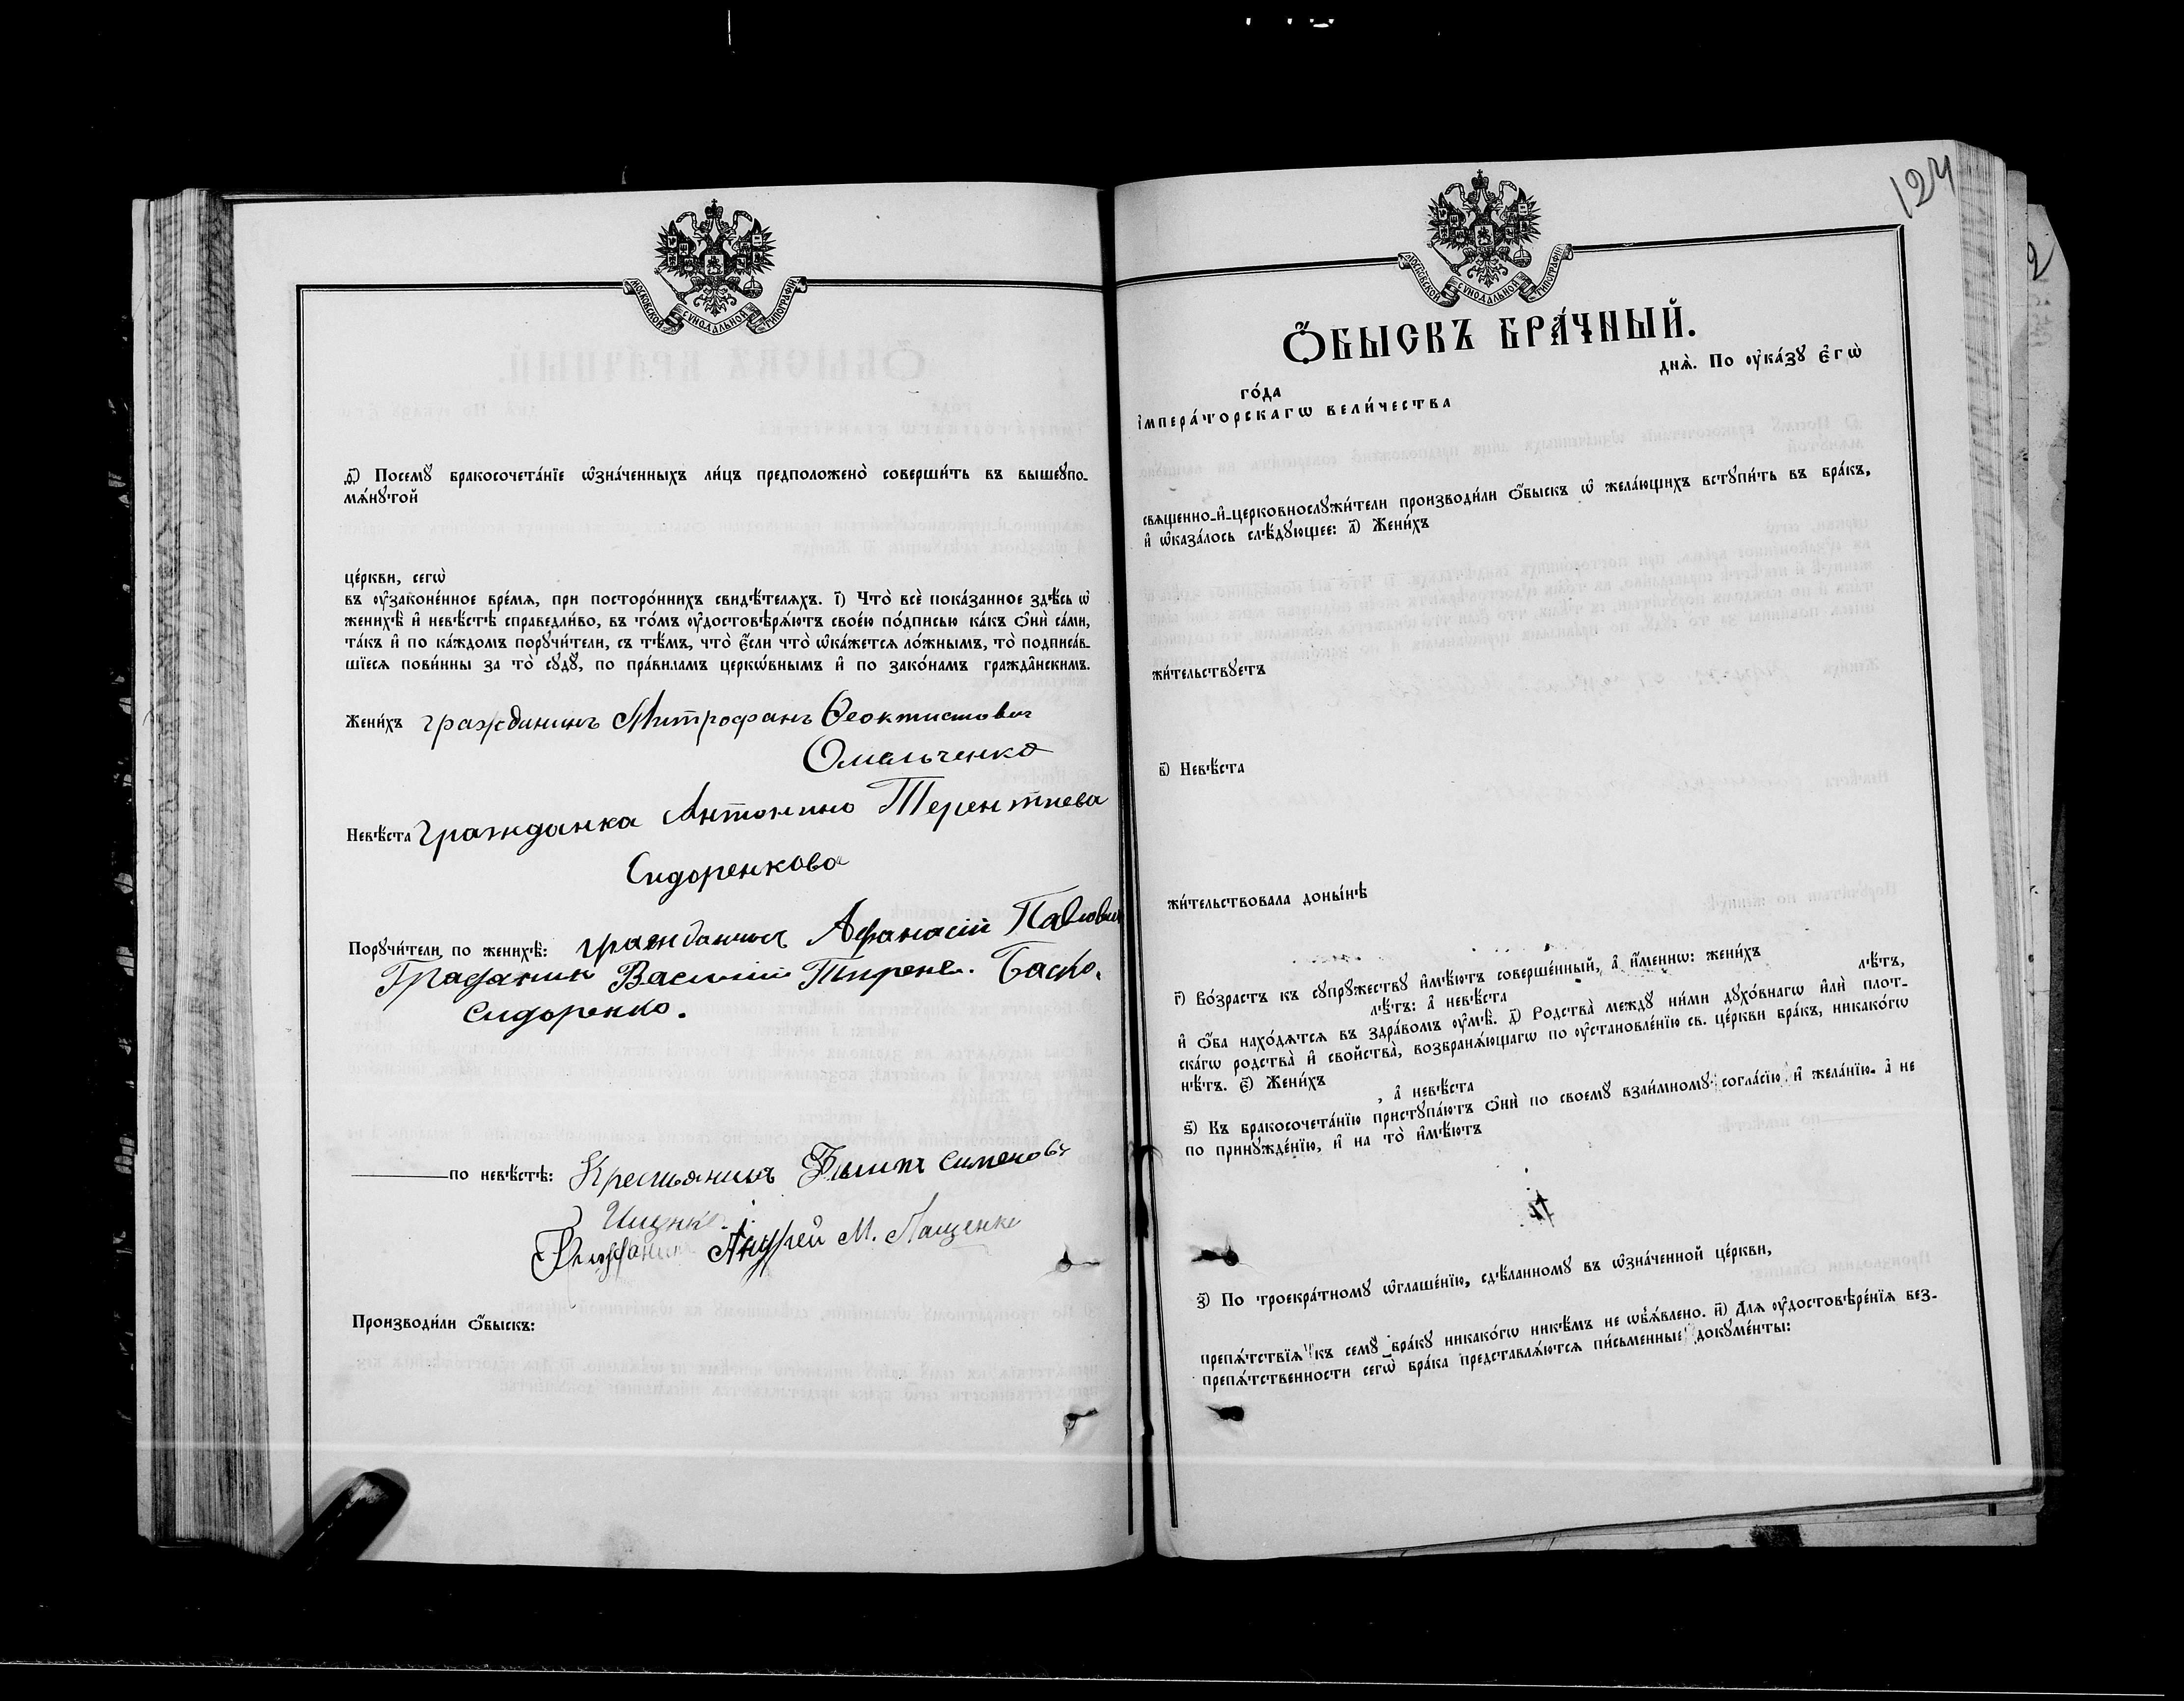 МОСКОВСКОЙ СѴНОДАЛЬНОЙ ТИПОГРАФІИ
ѳ҃) Посемꙋ бракосочета́нїе ѡ҆зна́ченныхъ ли́цъ предположено̀ соверши́ть въ вышеꙋпо-
мѧ́нꙋтой
це́ркви, сегѡ̀
въ ᲂу҆зако́не́нное вре́мѧ, при посторо́ннихъ свидѣ́телѧхъ. і҃) Что̀ всѐ пока́занное здѣ́сь ѡ҆
женихѣ̀ и҆ невѣ́стѣ справедли́во, въ то́мъ ᲂу҆достовѣрѧ́ютъ свое́ю по́дписью ка́къ ѻ҆нѝ са́ми,
та́къ и҆ по ка́ждомъ порꙋчи́тели, съ тѣ́мъ, что̀ є҆́сли что̀ ѡ҆ка́жетсѧ ло́жнымъ, то̀ подписа́в-
шїесѧ пови́нны за то̀ сꙋдꙋ̀, по пра́виламъ церко́внымъ и҆ по зако́намъ гражда̑нскимъ.
Жени́хъ гражданинъ Митрофанъ Ѳеоктистович
Омельченко
Невѣ́ста Гражданка Антонина Терентиева
Сидоренкова
Порꙋчи́тели по женихѣ̀: гражданинъ Афанасій Павлович
Гражданин Василий Баско.
Сидоренко.
по невѣ́стѣ: Крестьянинъ Филипъ Сименовъ
Ищенко
Гражданин Андрей М. Лащенко
Производи́ли ѻ҆́быскъ:
124
МОСКОВСКОЙ СѴНОДАЛЬНОЙ ТИПОГРАФІИ
Ѻ҆́БЫСКЪ БРА́ЧНЫЙ.
го́да днѧ̀. По ᲂу҆ка́зꙋ є҆гѡ̀
і҆мпера́торскагѡ вели́чества
свѧщенно-и҆-церковнослꙋжи́тели производи́ли ѻ҆́быскъ ѡ҆ жела́ющихъ встꙋпи́ть въ бра́къ,
и҆ ѡ҆каза́лось слѣ́дꙋющее: а҃) Жени́хъ
жи́тельствꙋетъ
в҃) Невѣ́ста
жи́тельствовала доны́нѣ
г҃) Во́зрастъ къ сꙋпрꙋжествꙋ и҆мѣ́ютъ соверше́нный, а҆ и҆́меннѡ: жени́хъ лѣ́тъ,
лѣ́тъ: а҆ невѣ́ста
и҆ ѻ҆́ба нахо́дѧтсѧ въ здра́вомъ ᲂу҆мѣ̀. д҃) Родства̀ междꙋ ни́ми дꙋхо́внагѡ и҆лѝ плот-
ска́гѡ родства̀ и҆ сво́йства̀, возбранѧ́ющагѡ по ᲂу҆становле́нїю св. це́ркви бра́къ, никако́гѡ
нѣ́тъ. є҃) Жени́хъ , а҆ невѣ́ста
ѕ҃) Къ бракосочета́нїю пристꙋпа́ютъ ѻ҆нѝ по своемꙋ̀ взаи́мномꙋ согла́сїю и҆ жела́нїю, а҆ не
по принꙋжде́нїю, и҆ на то̀ и҆мѣ́ютъ
з҃) По троекра́тномꙋ ѡ҆глаше́нїю, сдѣ́ланномꙋ въ ѡ҆зна́ченной це́ркви,
препѧ́тствїѧ къ семꙋ̀ бра́кꙋ никако́гѡ никѣ́мъ не ѡ҆б̾ѧ́влено. и҃) Длѧ ᲂу҆достовѣре́нїѧ без-
препѧ́тственности сегѡ̀ бра́ка представлѧ́ютсѧ пи́сьменные докꙋме́нты: